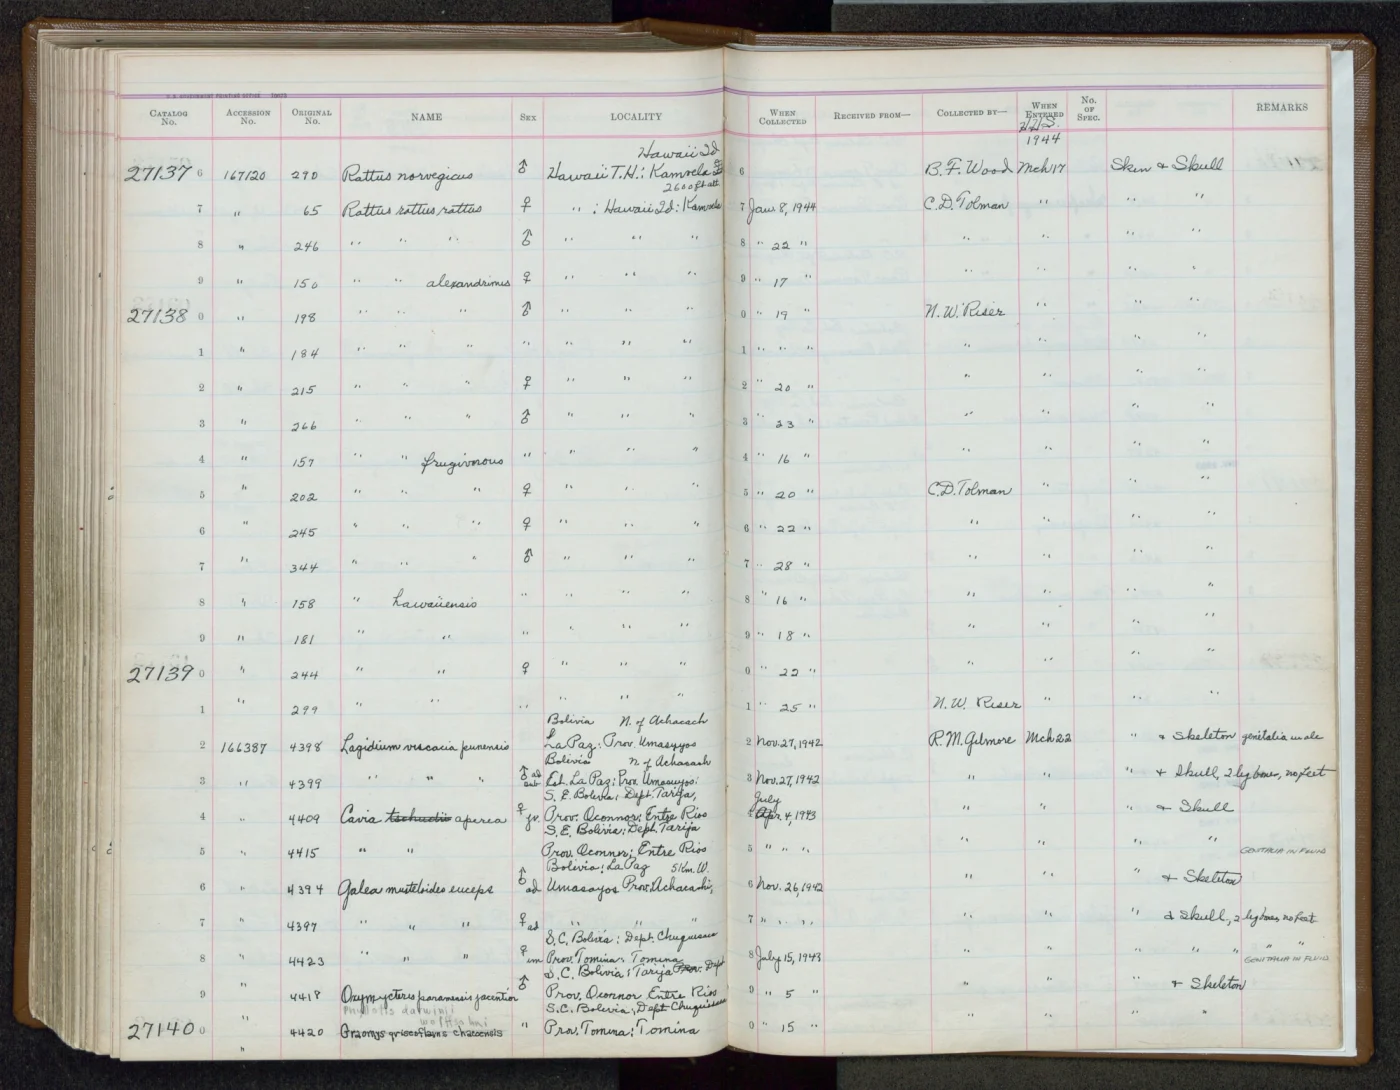 CATALOG No. ACCESSION No. ORIGINAL No. NAME SEX LOCALITY WHEN COLLECTED RECEIVED FROM— COLLECTED BY— WHEN ENTERED No. OF SPEC. REMARKS
1944
Hawaii Id
27137 6 167120 290 Rattus norvegicus ♂ Hawaii T.H.: 6 B. F. Wood Mch 17 Skin & Skull
2600 ft alt
7 " 65 Rattus rattus rattus ♀ " : Hawaii Id: 7 Jan. 8, 1944 C.D. Tolman " " "
8 " 246 " " " ♂ " " " 8 " 22 " " " " "
9 " 150 " " alexandrinus ♀ " " " 9 " 17 " " " "
27138 0 " 198 " " " ♂ " " " 0 " 19 " N. W. Riser " " "
1 " 184 " " " " " " " 1 " " " " " " "
2 " 215 " " " ♀ " " " 2 " 20 " " " " "
3 " 266 " " " ♂ " " " 3 " 23 " " " " "
4 " 157 " " frugivorous " " " " 4 " 16 " " " " "
5 " 202 " " " ♀ " " " 5 " 20 " C.D. Tolman " " "
6 " 245 " " " ♀ " " " 6 " 22 " " " " "
7 " 344 " " " ♂ " " " 7 " 28 " " " " "
8 " 158 " hawaiiensis " " " " 8 " 16 " " " " "
9 " 181 " " " " " " 9 " 18 " " " " "
27139 0 " 244 " " ♀ " " " 0 " 22 " " " " "
1 " 299 " " " " " " 1 " 25 " N. W. Riser " " "
Bolivia N. of Achacach
2 166387 4398 Lagidium viscacia punensis ♂ La Paz: Prov. Umasuyos 2 Nov. 27, 1942 R. M. Gilmore Mch 22 " & Skeleton genitalia in alc
Bolivia N of Achacach
3 " 4399 " " " ♂ ad sub Est. La Paz: Prov. Umasuyos: 3 Nov. 27, 1942 " " " & Skull, 2 leg bones, no feet
S. E. Bolivia; Dept. Tarija, July
4 " 4409 Cavia tschudii aperea ♀ jv. Prov. Oconnor; Entre Rios 4 Apr. 4, 1943 " " " & Skull
S. E. Bolivia; Dept. Tarija
5 " 4415 " " Prov. Oconnor; Entre Rios 5 " " " " " " " GENITALIA IN FLUID
Bolivia; La Paz 5 Km. W.
6 " 4394 Galea musteloides euceps ♂ ad Umasayos Prov: Achacachi, 6 Nov. 26, 1942 " " & Skeleton
7 " 4397 " " " ♀ ad " " " 7 " " " " " " & Skull, 2 leg bones no feet
S. C. Bolivia; Dept. Chuquisaca
8 " 4423 " " " ♀ im Prov. Tomina: Tomina 8 July 15, 1943 " " " " " " " GENITALIA IN FLUID
S. C. Bolivia; Tarija Prov. Dept
9 " 4418 Oxymycterus paramensis jacentior ♂ Prov. Oconnor Entre Rios 9 " 5 " " " " & Skeleton
Phyllotis darwini wolffsohni S.C. Bolivia; Dept Chuquisaca
27140 0 " 4420 Graomys griseoflavus chacoensis " Prov. Tomina; Tomina 0 " 15 " " " " "
"